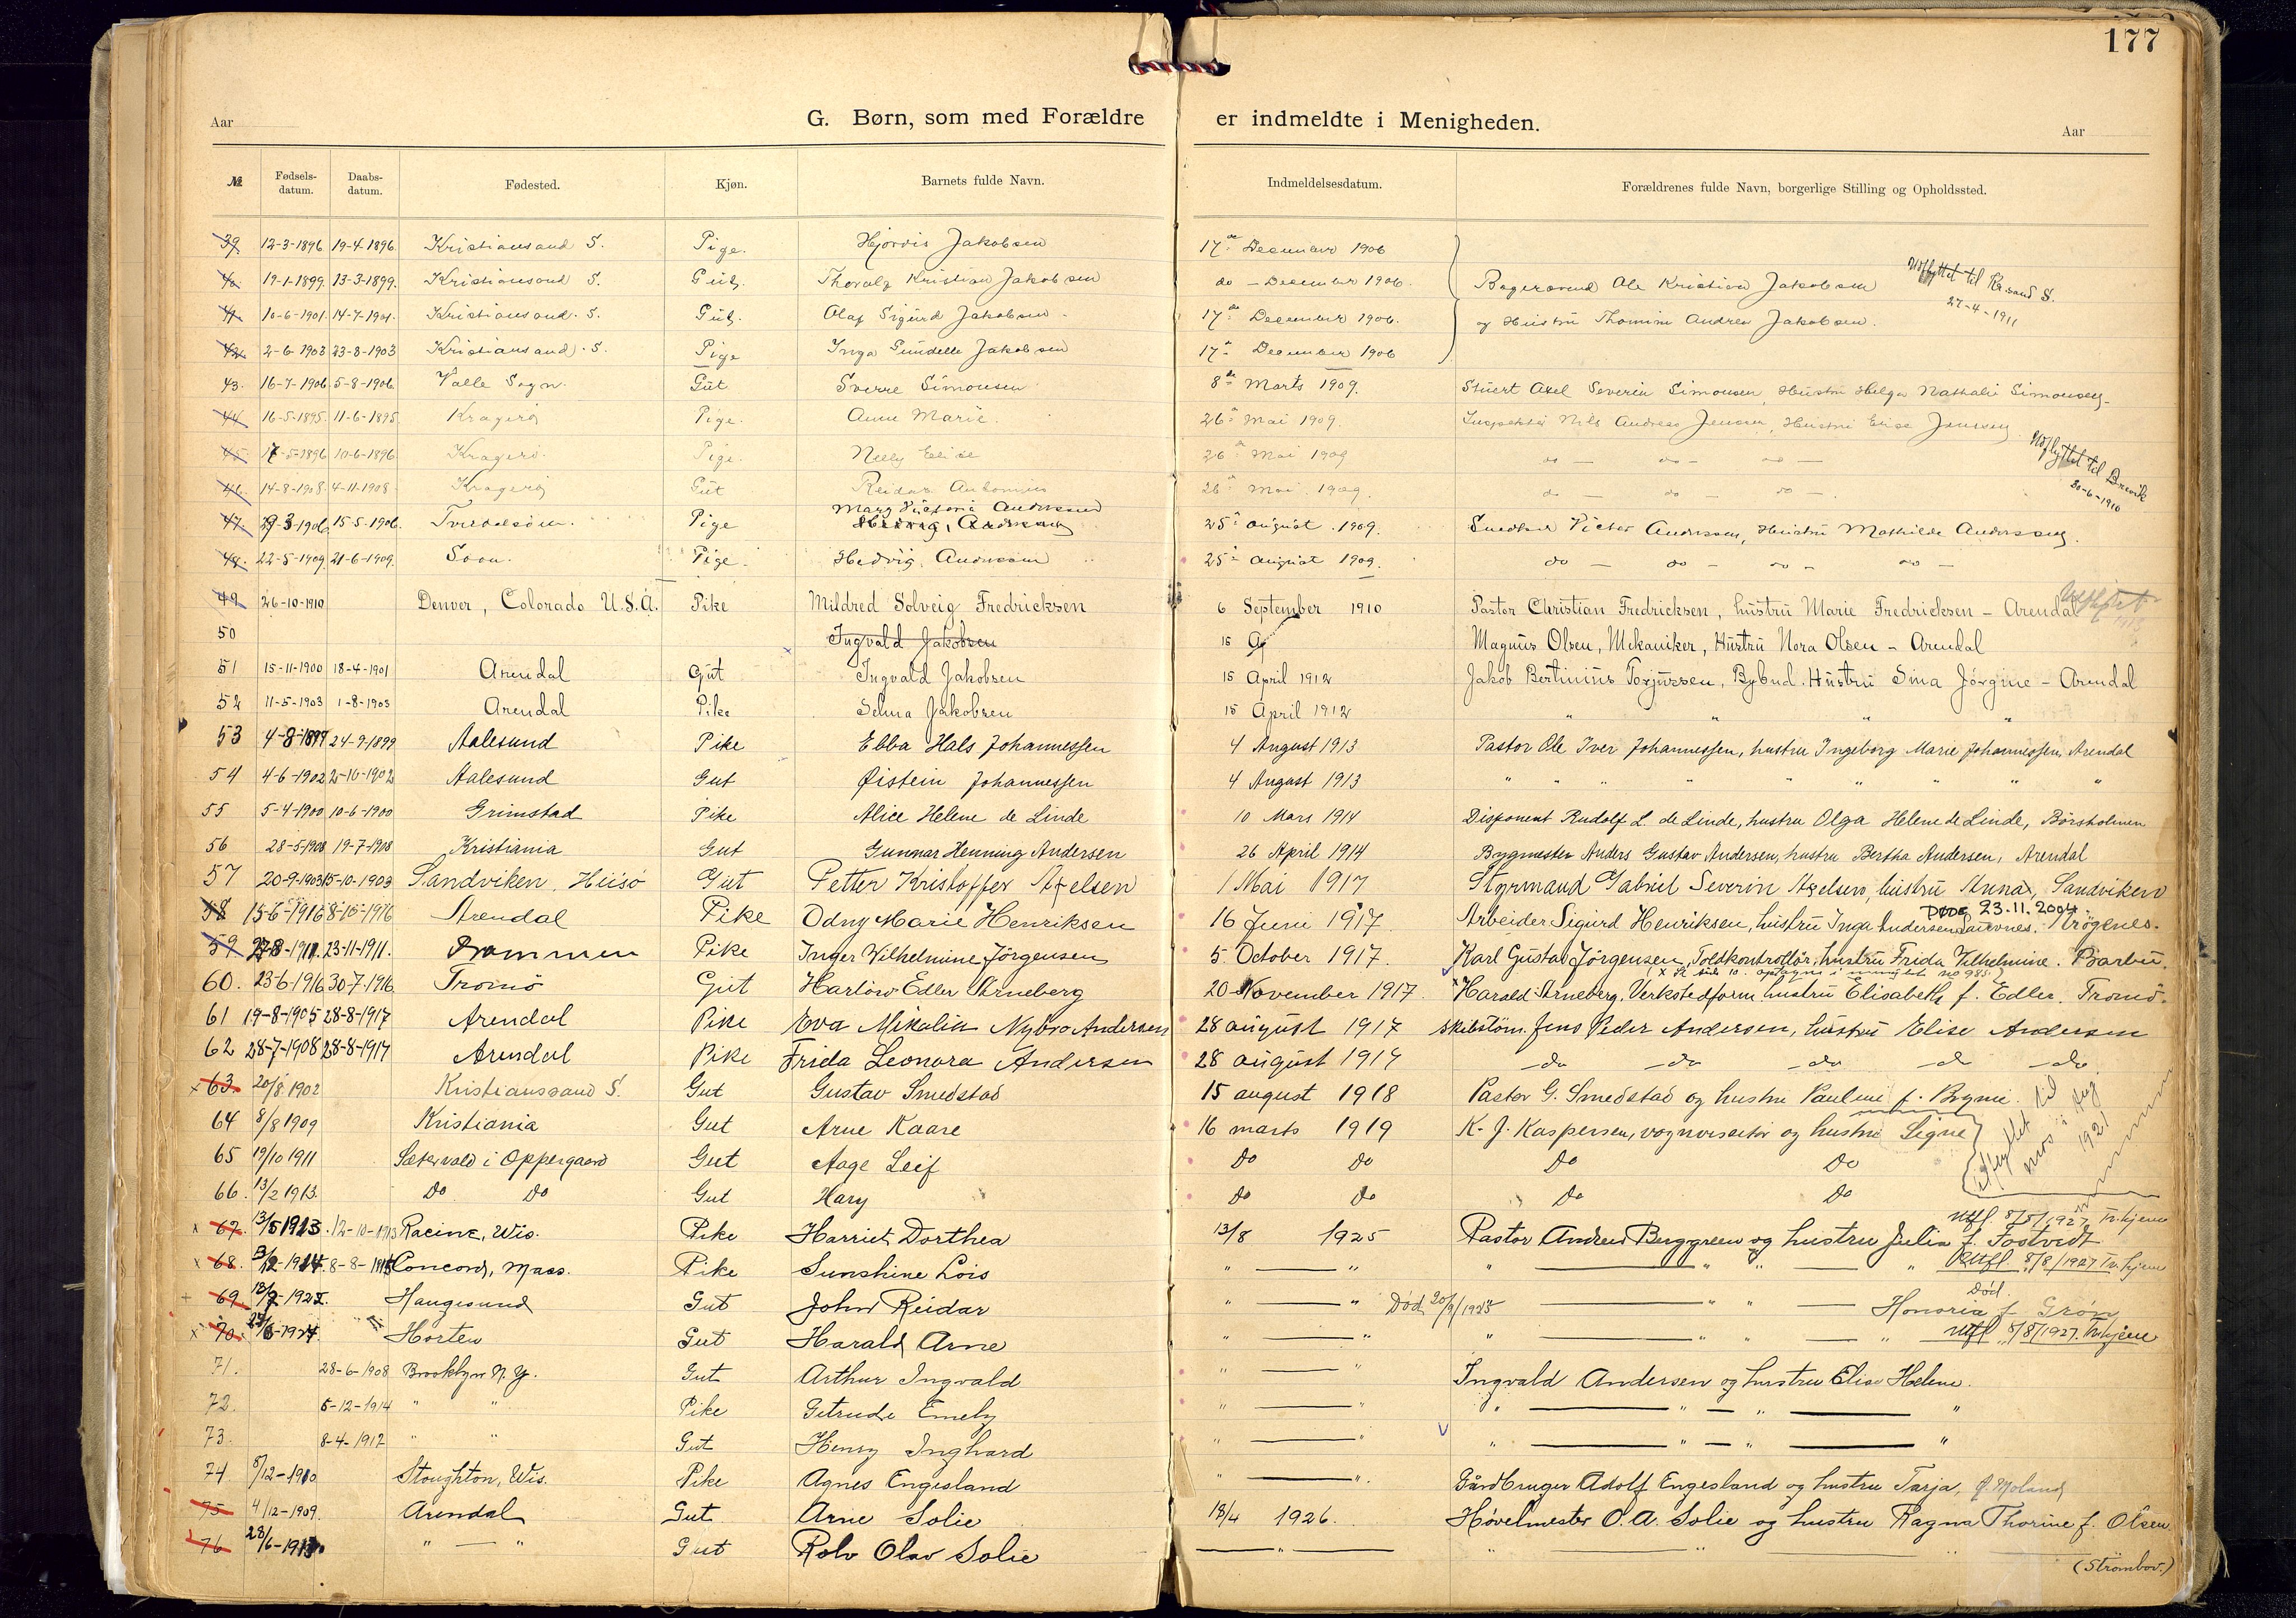 177
Aar G. Børn, som med Forældre er indmeldte i Menigheden. Aar
№ Fødsels-datum. Daabs-datum. Fødested. Kjøn. Barnets fulde Navn. Indmeldelsesdatum. Forældrenes fulde Navn, borgerlige Stilling og Opholdssted.
39. 12-3-1896 19-4-1896. Kristiansand S. Pige. Hjørdis Jakobsen 17de December 1906
40. 19-1-1899. 13-3-1899. Kristiansand S. Gut. Kristian Jakobsen do - December 1906. Ole Kristian Jakobsen Udflyttet til Kr.sand S.
41. 10-6-1901. 14-7-1901. Kristiansand. S. Gut. Olaf Sigurd Jakobsen 17de December 1906. og Hustru Thomine Andrea Jakobsen. 27-4-1911
42. 2-6-1903 23-8-1903 Kristiansand. S. Pige Inga Jakobsen 17de December 1906
43. 16-7-1906. 5-8-1906. Valle Sogn. Gut Sverre Simonsen 8de Marts 1909. Stuert Axel Severin Simonsen, Hustru Helga Nathalie Simonsen
44. 16-5-1895. 11-6-1895. Kragerø Pige. Anne Marie. 26de Mai 1909. Nils Andreas Jensen, Hustru Elise Jensen
45. 17-5-1896 10-6-1896. Kragerø. Pige. Nelly Elise 26de Mai 1909 do — do — do — Udflyttet til Brevik
46. 14-8-1908. 4-11-1908. Kragerø Gut Reidar Antonius 26de Mai. 1909. do — do — do —. 20-6-1910
47. 29-3-1906. 15-5-1906. Pige Mary Victoria Andersen 25de august. 1909. Victor Andersen, Hustru Mathilde Andersen.
48. 22-5-1909. 21-6-1909. Soon. Pige. Hedvig. Andersen 25de august 1909. do — do — do — do —
49 26-10-1910 Denver, Colorado U.S.A. Pike Mildred Solveig Fredricksen 6 September 1910 Pastor Christian Fredricksen, hustru Marie Fredricksen - Arendal
50 Ingvald Jakobsen 15 Magnus Olsen, Mekaniker, Hustru Nora Olsen - Arendal
51 15-11-1900 18-4-1901 Arendal Gut Ingvald Jakobsen 15 April 1912 Jakob Bertinius Torjussen, Bybud. Hustru Sina Jørgine - Arendal
52 11-5-1903 1-8-1903 Arendal Pike Selma Jakobsen 15 April 1912 " " " "
53 4-8-1899 24-9-1899 Aalesund Pike Ebba Hals Johannessen 4 August 1913 Pastor Ole Iver Johannessen, hustru Ingeborg Marie Johannessen, Arendal
54 4-6-1902 2-10-1902 Aalesund Gut Øistein Johannessen 4 August 1913 " " " " " " " "
55 5-4-1900 10-6-1900 Grimstad Pike Alice Helene de Linde 10 Mars 1914 Disponent Rudolf L. de Linde, hustru Olga Helene de Linde, Børsholmen
56 28-5-1908 19-7-1908 Kristiania Gut Gunnar Henning Andersen 26 April 1914 Bygmester Anders Gustav Andersen, hustru Bertha Andersen, Arendal
57 20-9-1903 15-10-1903 Sandviken, Hiisö Gut Petter Kristoffer Axelsen 1 Mai 1917 Styrmand Gabriel Severin Axelsen, hustru Anna, Sandviken
58 15-6-1916 8-10-1916 Arendal Pike Odny Marie Henriksen 16 Juni 1917. Arbeider Sigurd Henriksen, hustru Inga Andersen. Krögenes. DØDE 23.11.2004.
59 1911. 23-11-1911. Drammen Pike Inger Wilhelmine Jørgensen 5. October 1917. Karl Gustav Jørgensen, Toldkontrollör, hustru Frida Vilhelmine. Barbu.
60. 23-6-1916 30-7-1916 Tromö Gut Harlow Edler Arneberg 20 November 1917. Harald Arneberg. Verkstedform. hustru Elisabeth f. Edler. Tromö.
61 19-8-1905 28-8-1917 Arendal Pike Eva Mikalia Nybro Andersen 28 august 1917 Skibstöm. Jens Peder Andersen, hustru Elise Andersen
62 28-7-1908 28-8-1917 Arendal Pike Frida Leonora Andersen 28 august 1917 -do -do -do -do -do.
x 63. 20/8 1902 Kristianssand S. Gut Gustav Smedstad 15 august 1918 Pastor G. Smedstad og hustru Pauline f. Bryne.
64 8/8 1909 Kristiania Gut Arne Kaare 16 marts 1919 K. J. Kaspersen, og hustru Signe
65 19/10 1911 Sætervald i Oppergaard Gut Aage Leif Do Do Do Do
66. 13/2 1913. Do Do Gut Hary Do Do Do Do
Utfl. 8/8/1927. Tr.hjem
x 67. 13/5 1913. 12-10-1913 Racine, Wis. Pike Harriet Dorthea 13/8 1925 Pastor Andrew Berggreen og hustru Julia f. Tostvedt
x 68. 8-8-1915 Concord, Mass. Pike Sunshine Lois " — " " — " " — " Utfl 8/8/1927 Tr.hjem
+ 69. Haugesund Gut John Reidar " — " Død 20/9/1925 — " " — Honoria f. Grøn Død.
x 70. Horten Gut Harald Arne " — " " — " " — " Utfl 8/8/1927. Tr.hjem
71. 28-6-1908 Brooklyn N.Y. Gut Arthur Ingvald " — " Ingvald Andersen og hustru Elise Helene.
72. 5-12-1914 " " Pike Getrude Emely " — " " — " — " — "
73. 8-4-1912 " " Gut Henry Inghard " — " " — " — " — "
74 8/12-1910 Stoughton, Wis. Pike Agnes Engesland " — ". Gårdbruger Adolf Engesland og hustru Tarja, f. Moland
75 4/12-1909. Arendal Gut Arne Solie 18/4 1926. Høvelmester O. A. Solie og hustru Ragna Thorine f. Olsen
76 " — " Gut Rolv Olav Solie — " — " " "
(Strömbov.)